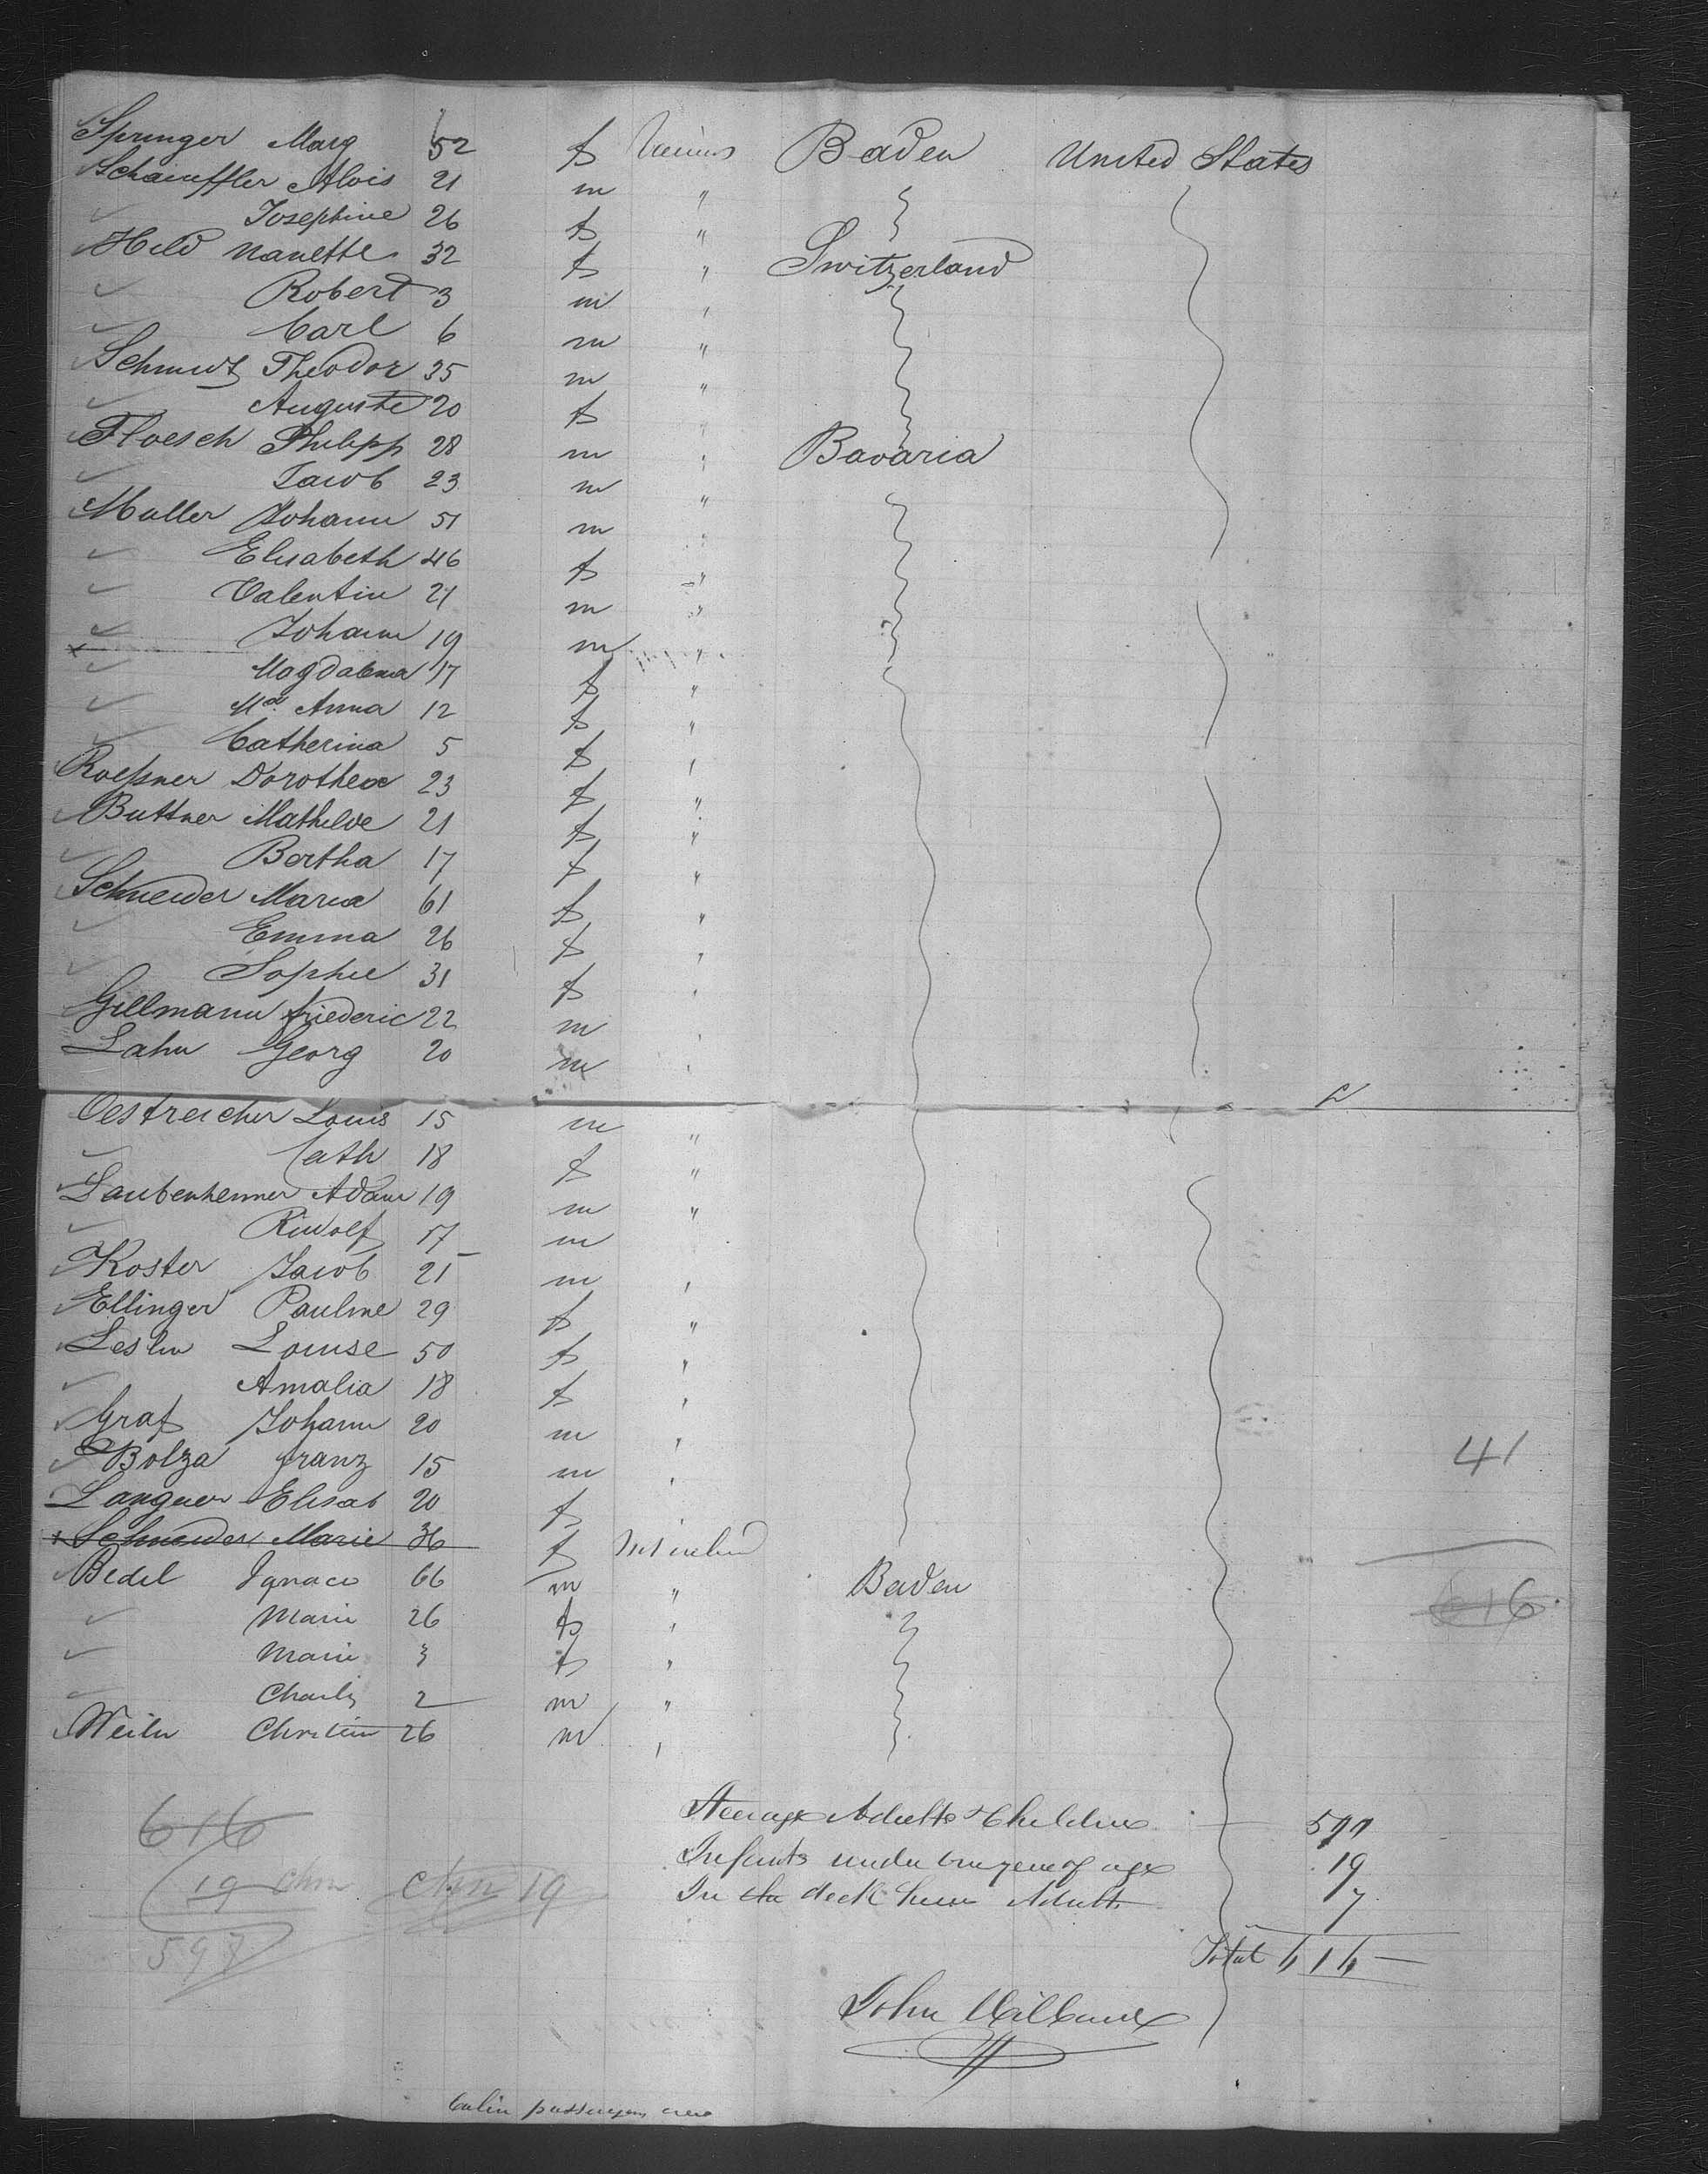 Springer Marg 52 f Baden United States
Schaeuffler Alois 21 m "
✓ Josephine 26 f "
Held Nanette 32 f " Switzerland
✓ Robert 3 m "
✓ Carl 6 m "
Schmidt Theodor 35 m "
✓ Auguste 20 f "
Floesch Philipp 28 m " Bavaria
✓ Jacob 23 m "
Muller Johann 51 m "
✓ Elisabeth 46 f "
✓ Valentin 21 m "
✓ Johann 19 m "
x ✓ Magdalena 17 f "
✓ Ma. Anna 12 f "
✓ Catherina 5 f "
Roeßner Dorothea 23 f "
Buttner Mathilde 21 f "
✓ Bertha 17 f "
Schneider Maria 61 f "
✓ Emma 26 f "
✓ Sophie 31 f "
Gillmann Friederic 22 m "
Lahn Georg 20 m "
Oestreicher Louis 15 m "
✓ Cath 18 f "
Laubenheimer Adam 19 m "
✓ Rudolf 17 m
Koster Jacob 21 m "
Ellinger Pauline 29 f "
Leslin Louise 50 f "
✓ Amalia 18 f "
Graf Johann 20 m "
Bolza Franz 15 m " 41
Languer Elisab 20 f "
x Schneider Marie 36 f
Bedel Ignace 66 m " Baden 616
✓ Marie 26 f "
✓ Marie 3 f "
✓ Charly 2 m "
Weiler 26 m "
Steerage Adults & Children 597
616
Infants under one year of age 19
19 chn chn 19
In deck house Adults 7
597
Total 616
John
passengers